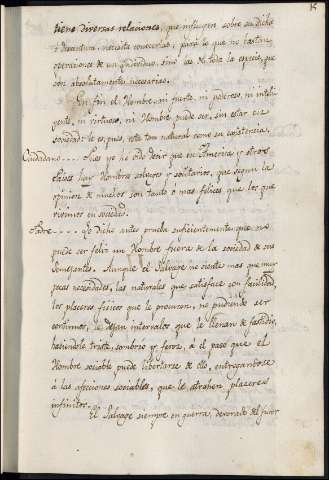 tiene diversas relaciones, que influyen sobre su dicha
ó desventura, necesita conocerlas; para lo que no bastan
operaciones de un Individuo, sino las de toda la especie, que
son absolutamente necesarias.
En fin el Hombre, ni fuerte, ni poderoso, ni inteli-
gente, ni virtuoso, ni Hombre puede ser, sin estar en
sociedad: le es, pues, esta tan natural como su existencia.
Ciudadano.... Pues yo he oido decir que en America y otros
Paises hay Hombres salvages y solitarios, que segun la
opinion de muchos son tanto ó mas felices que los que
vivimos en sociedad.
Padre.... Lo dicho antes prueba suficientemente que no
puede ser feliz un Hombre fuera de la sociedad de sus
semejantes. Aunque el Salvage no siente mas que muy
pocas necesidades, las naturales que satisface con facilidad,
los placeres fisicos que le procuran, no pudiendo ser
continuos, le dejan intervalos que le llenan de fastidio,
haciendole triste, sombrio y feroz, á el paso que el
Hombre sociable puede libertarse de ello, entregandose
á las aficiones sociables, que le atrahen placeres
infinitos.
El Salvage siempre en guerra, devorado del furor